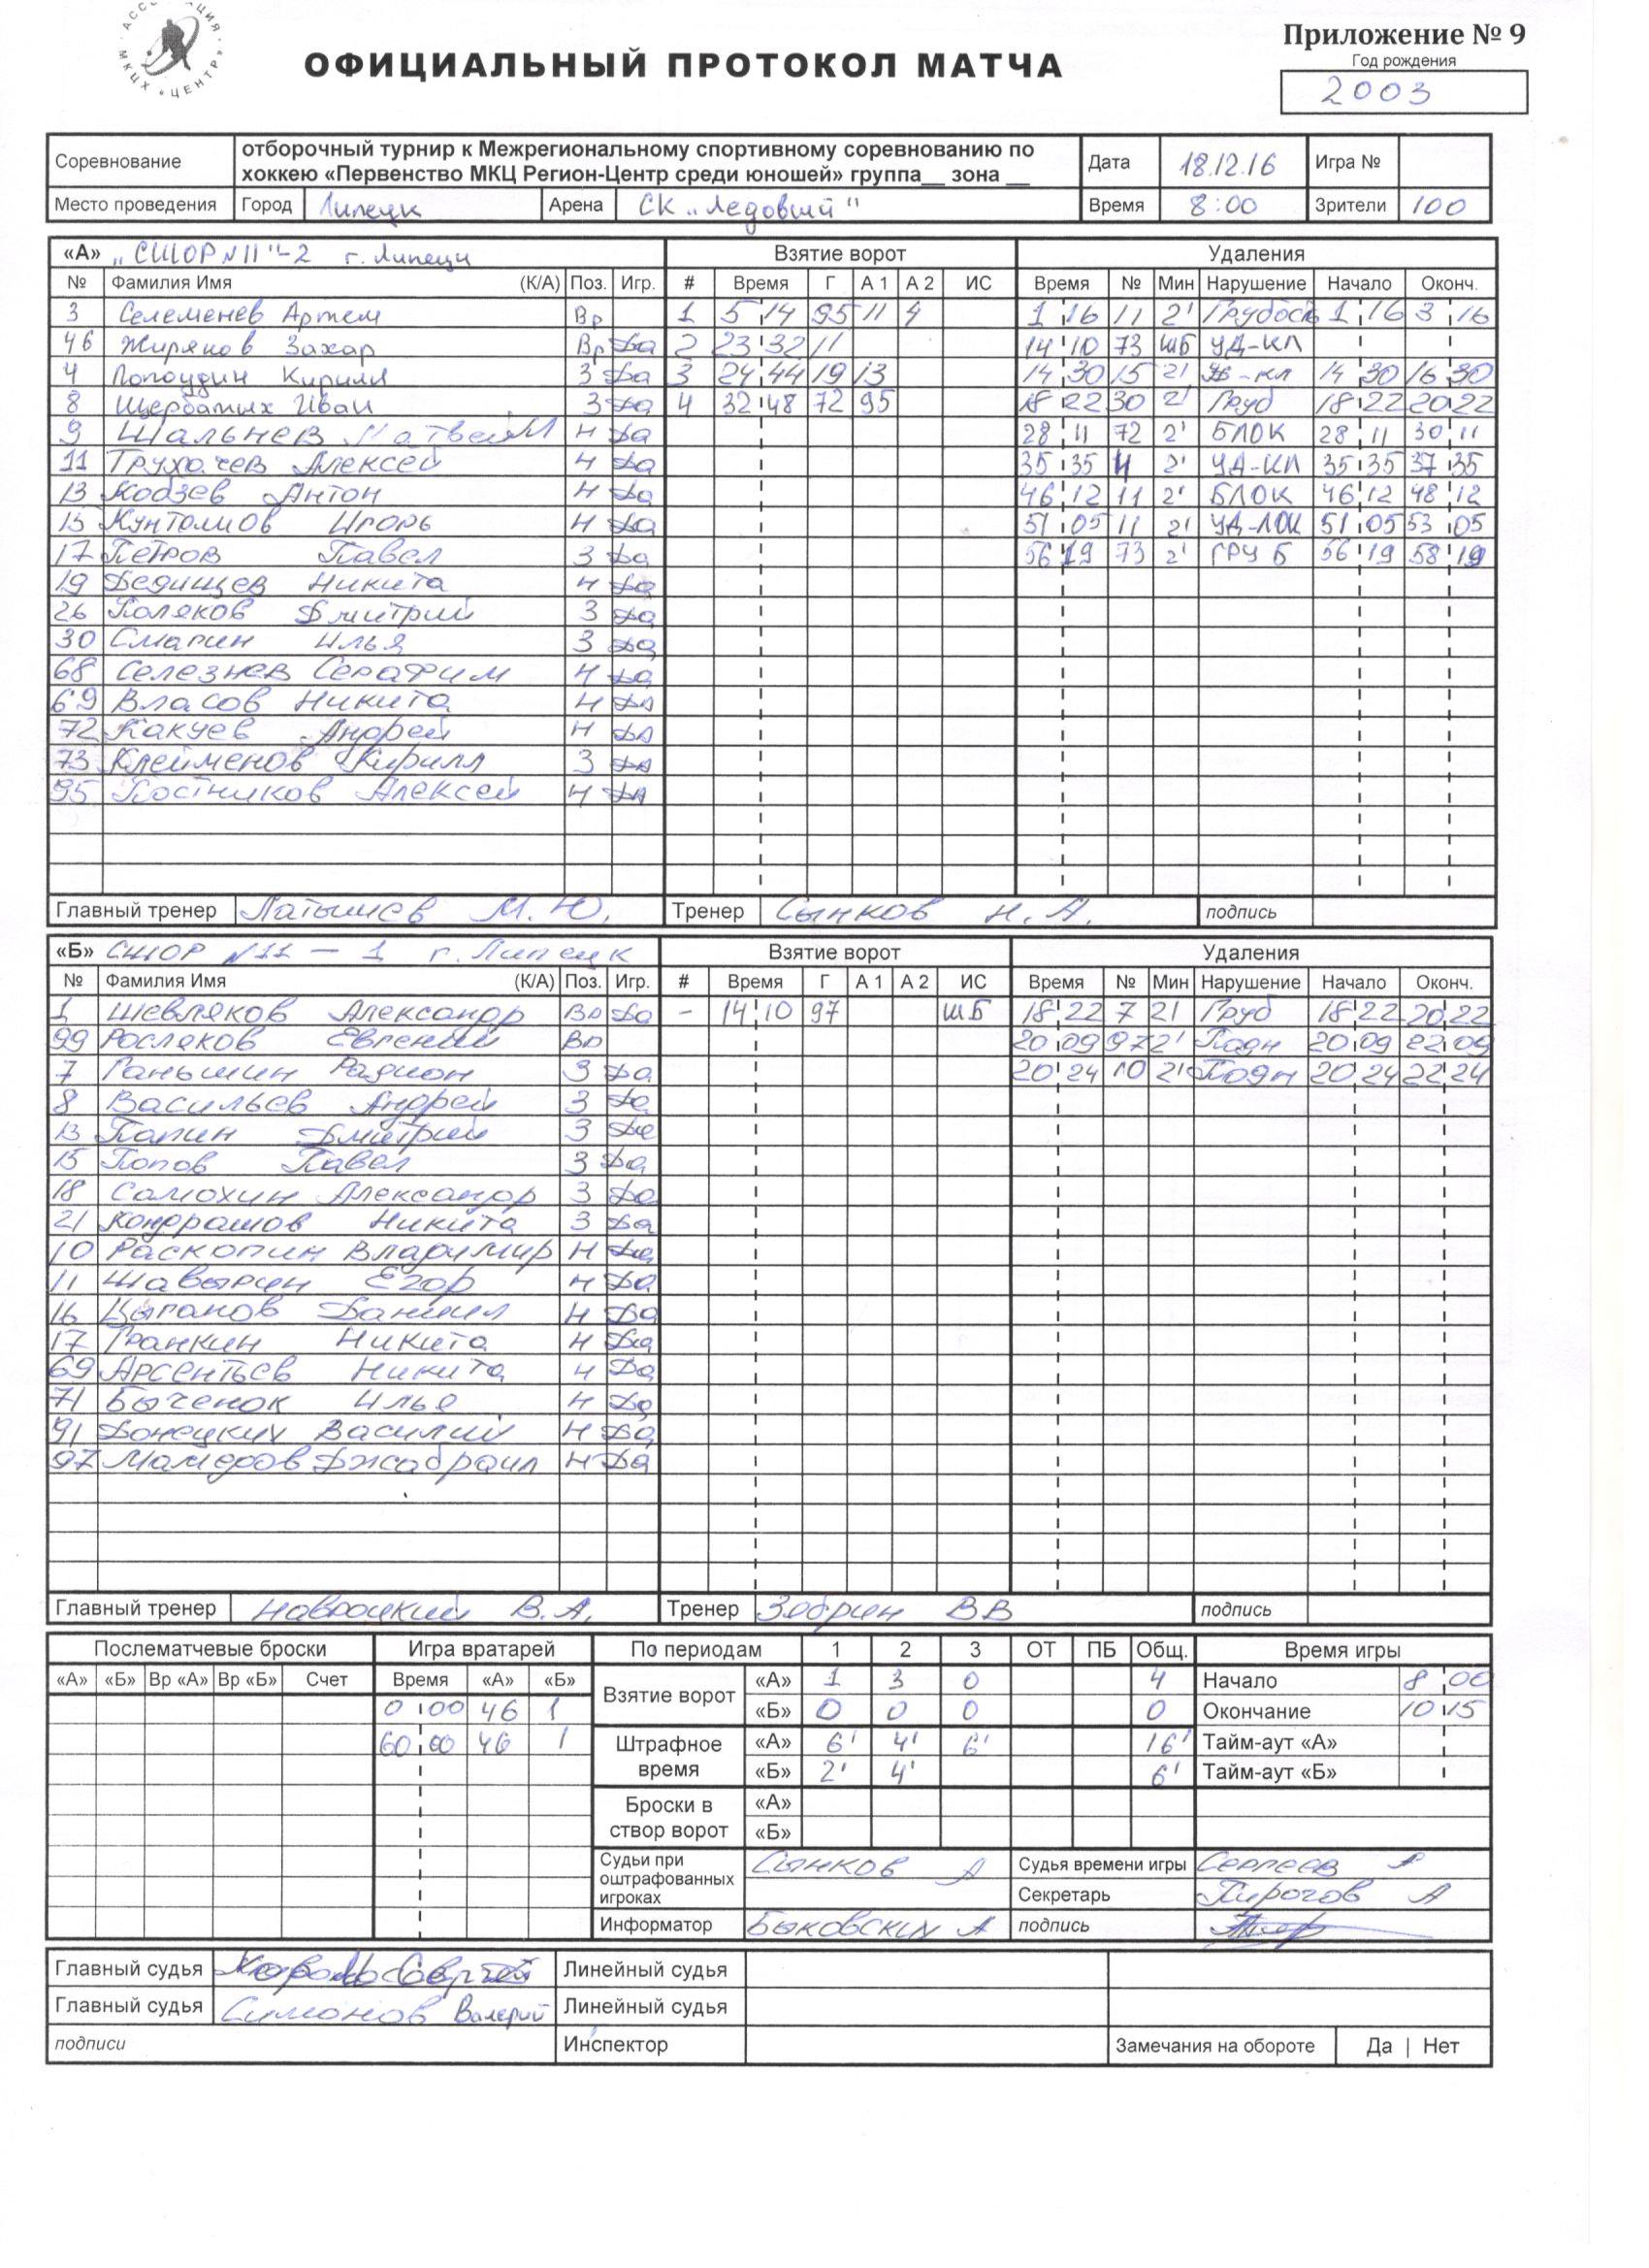 АССОЦИАЦИЯ МКЦХ «ЦЕНТР»
Приложение № 9
ОФИЦИАЛЬНЫЙ ПРОТОКОЛ МАТЧА
Год рождения
2003
Соревнование отборочный турнир к Межрегиональному спортивному соревнованию по
хоккею «Первенство МКЦ Регион-Центр среди юношей» группа__ зона __
Дата 18.12.16 Игра №
Место проведения Город Липецк Арена СК „Ледовый" Время 8:00 Зрители 100
«А» „СШОР №11"-2 г. Липецк Взятие ворот Удаления
№ Фамилия Имя (К/А) Поз. Игр. # Время Г А 1 А 2 ИС Время № Мин Нарушение Начало Оконч.
3 Селеменев Артем Вр 1 5 14 95 11 4 1 16 11 2' Грубость 1 16 3 16
46 Жиряков Захар Вр Да 2 23 32 11 14 10 73 ШБ УД-КЛ
4 Кирилл З Да 3 24 44 19 13 14 30 15 2' -КЛ 14 30 16 30
8 Щербатых Иван З Да 4 32 48 72 95 18 22 30 2' Груб 18 22 20 22
9 Шальнев Матвей Н Да 28 11 72 2' БЛОК 28 11 30 11
11 Трухачев Алексей Н Да 35 35 4 2' УД-КЛ 35 35 37 35
13 Кобзев Антон Н Да 46 12 11 2' БЛОК 46 12 48 12
15 Игорь Н Да 51 05 11 2' УД-ЛОК 51 05 53 05
17 Петров Павел З Да 56 19 73 2' ГРУБ 56 19 58 19
19 Дедищев Никита Н Да
26 Поляков Дмитрий З Да
30 Смагин Илья З Да
68 Селезнев Серафим Н Да
69 Власов Никита Н ДА
72 Какуев Андрей Н ДА
73 Клейменов Кирилл З ДА
95 Постников Алексей Н ДА
Главный тренер Латышев М.Ю. Тренер Сынков Н.А. подпись
«Б» СШОР №11 – 1 г. Липецк Взятие ворот Удаления
№ Фамилия Имя (К/А) Поз. Игр. # Время Г А 1 А 2 ИС Время № Мин Нарушение Начало Оконч.
1 Шевляков Александр Вр Да - 14 10 97 ШБ 18 22 7 2' Груб 18 22 20 22
99 Росляков Евгений Вр 20 09 97 2' Подн 20 09 22 09
7 Ганьшин Радион З Да 20 24 10 2' Подн 20 24 22 24
8 Васильев Андрей З Да
13 Папин Дмитрий З Да
15 Попов Павел З Да
18 Самохин Александр З Да
21 Кондрашов Никита З Да
10 Раскопин Владимир Н Да
11 Шавырин Егор Н Да
16 Цыганов Даниил Н Да
17 Гранкин Никита Н Да
69 Арсентьев Никита Н Да
71 Быченок Илья Н Да
91 Донецких Василий Н Да
97 Мамедов Джабраил Н Да
Главный тренер Навроцкий В.А. Тренер Зобрин В В подпись
Послематчевые броски Игра вратарей По периодам 1 2 3 ОТ ПБ Общ. Время игры
«А» «Б» Вр «А» Вр «Б» Счет Время «А» «Б» Взятие ворот «А» 1 3 0 4 Начало 8 00
0 00 46 1 «Б» 0 0 0 0 Окончание 10 15
60 00 46 1 Штрафное время «А» 6' 4' 6' 16' Тайм-аут «А»
«Б» 2' 4' 6' Тайм-аут «Б»
Броски в створ ворот «А»
«Б»
Судьи при оштрафованных игроках Сынков А Судья времени игры Сергеев
Секретарь Пирогов А
Информатор Быковских А подпись
Главный судья Линейный судья
Главный судья Симонов Валерий Линейный судья
подписи Инспектор Замечания на обороте Да | Нет